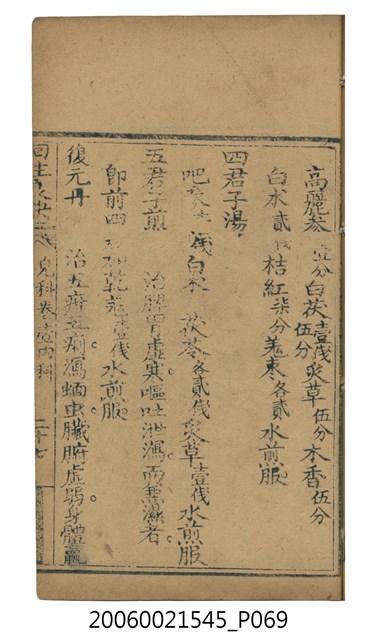 高麗參 壹分白茯壹錢炙草伍分木香伍分
伍分
白朮貳錢桔紅柒分羗棗各貳水煎服
四君子湯
吧參 錢白朮 茯苓各貳錢炙草壹錢水煎服
五君子煎 治脾胃虛寒嘔吐泄瀉而兼濕者。
即前四 加乾羗壹錢水煎服
復元丹 治五疳五痢瀉蛔虫臟腑虛弱身體羸
回生 兒科卷壹內科 二十七
20060021545_P069